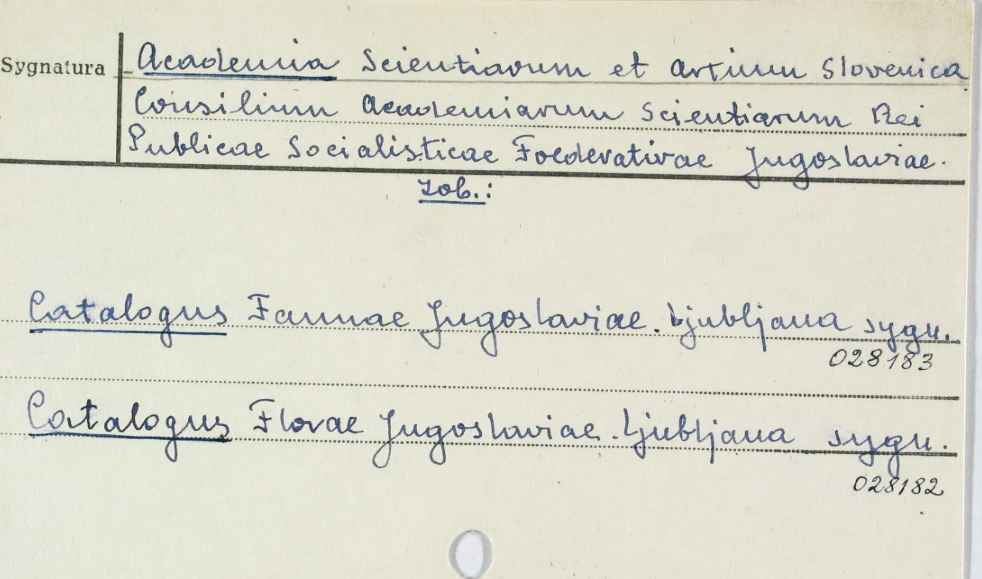 Sygnatura
Academia Scientiarum et Artium Slovenica
Consilium Academiarum Scientiarum Rei
Publicae Socialisticae Foederativae Jugoslaviae.
zob.:
Catalogus Faunae Jugoslaviae. Ljubljana sygn.
028183
Catalogus Florae Jugoslaviae. Ljubljana sygn.
028182